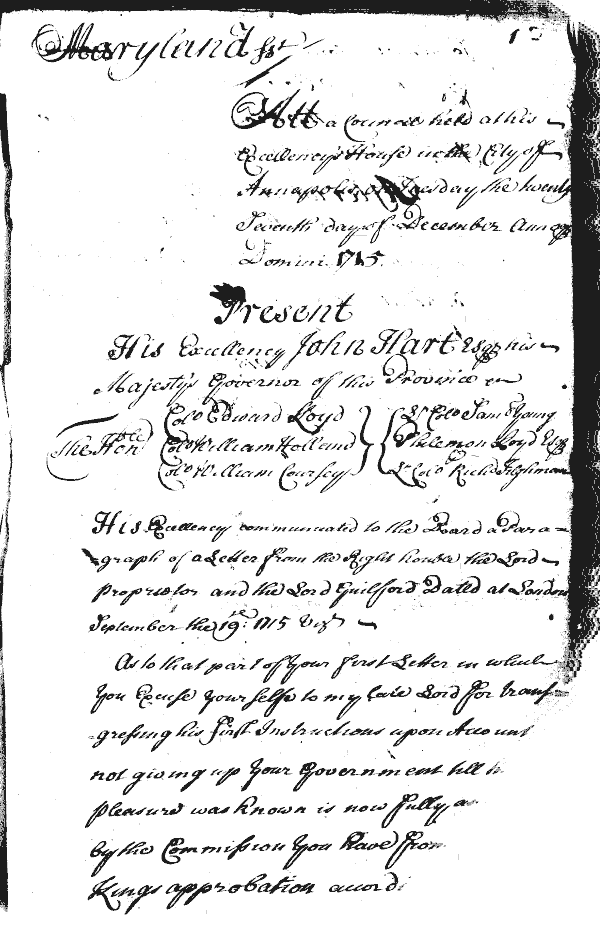 Maryland ss
12
Att a Councel held at his
Excellency's House in the City of
Annapolis on Tuesday the twenty
Seventh day of December Annoq
Domini 1715.
Present
His Excellency John Hart Esqr his
Majestys Governor of this Province
The Honble
Colo Edward Lloyd
Colo William Holland
Colo William Coursey
Lt Colo Sam Young
Philemon Loyd Esqr
Lt Colo Richd Tilghman
His Excellency communicated to the Board a Para=
=graph of a Letter from the Right honble the Lord
Proprietor and the Lord Guilford Dated at London
September the 19th: 1715 Vizt
As to that part of Your first Letter in which
You Excuse Yourselfe to my late Lord for trans=
=gressing his first Instructions upon Account
not giving up Your Government till h
pleasure was known is now fully
by the Commission You have from
Kings approbation accordi